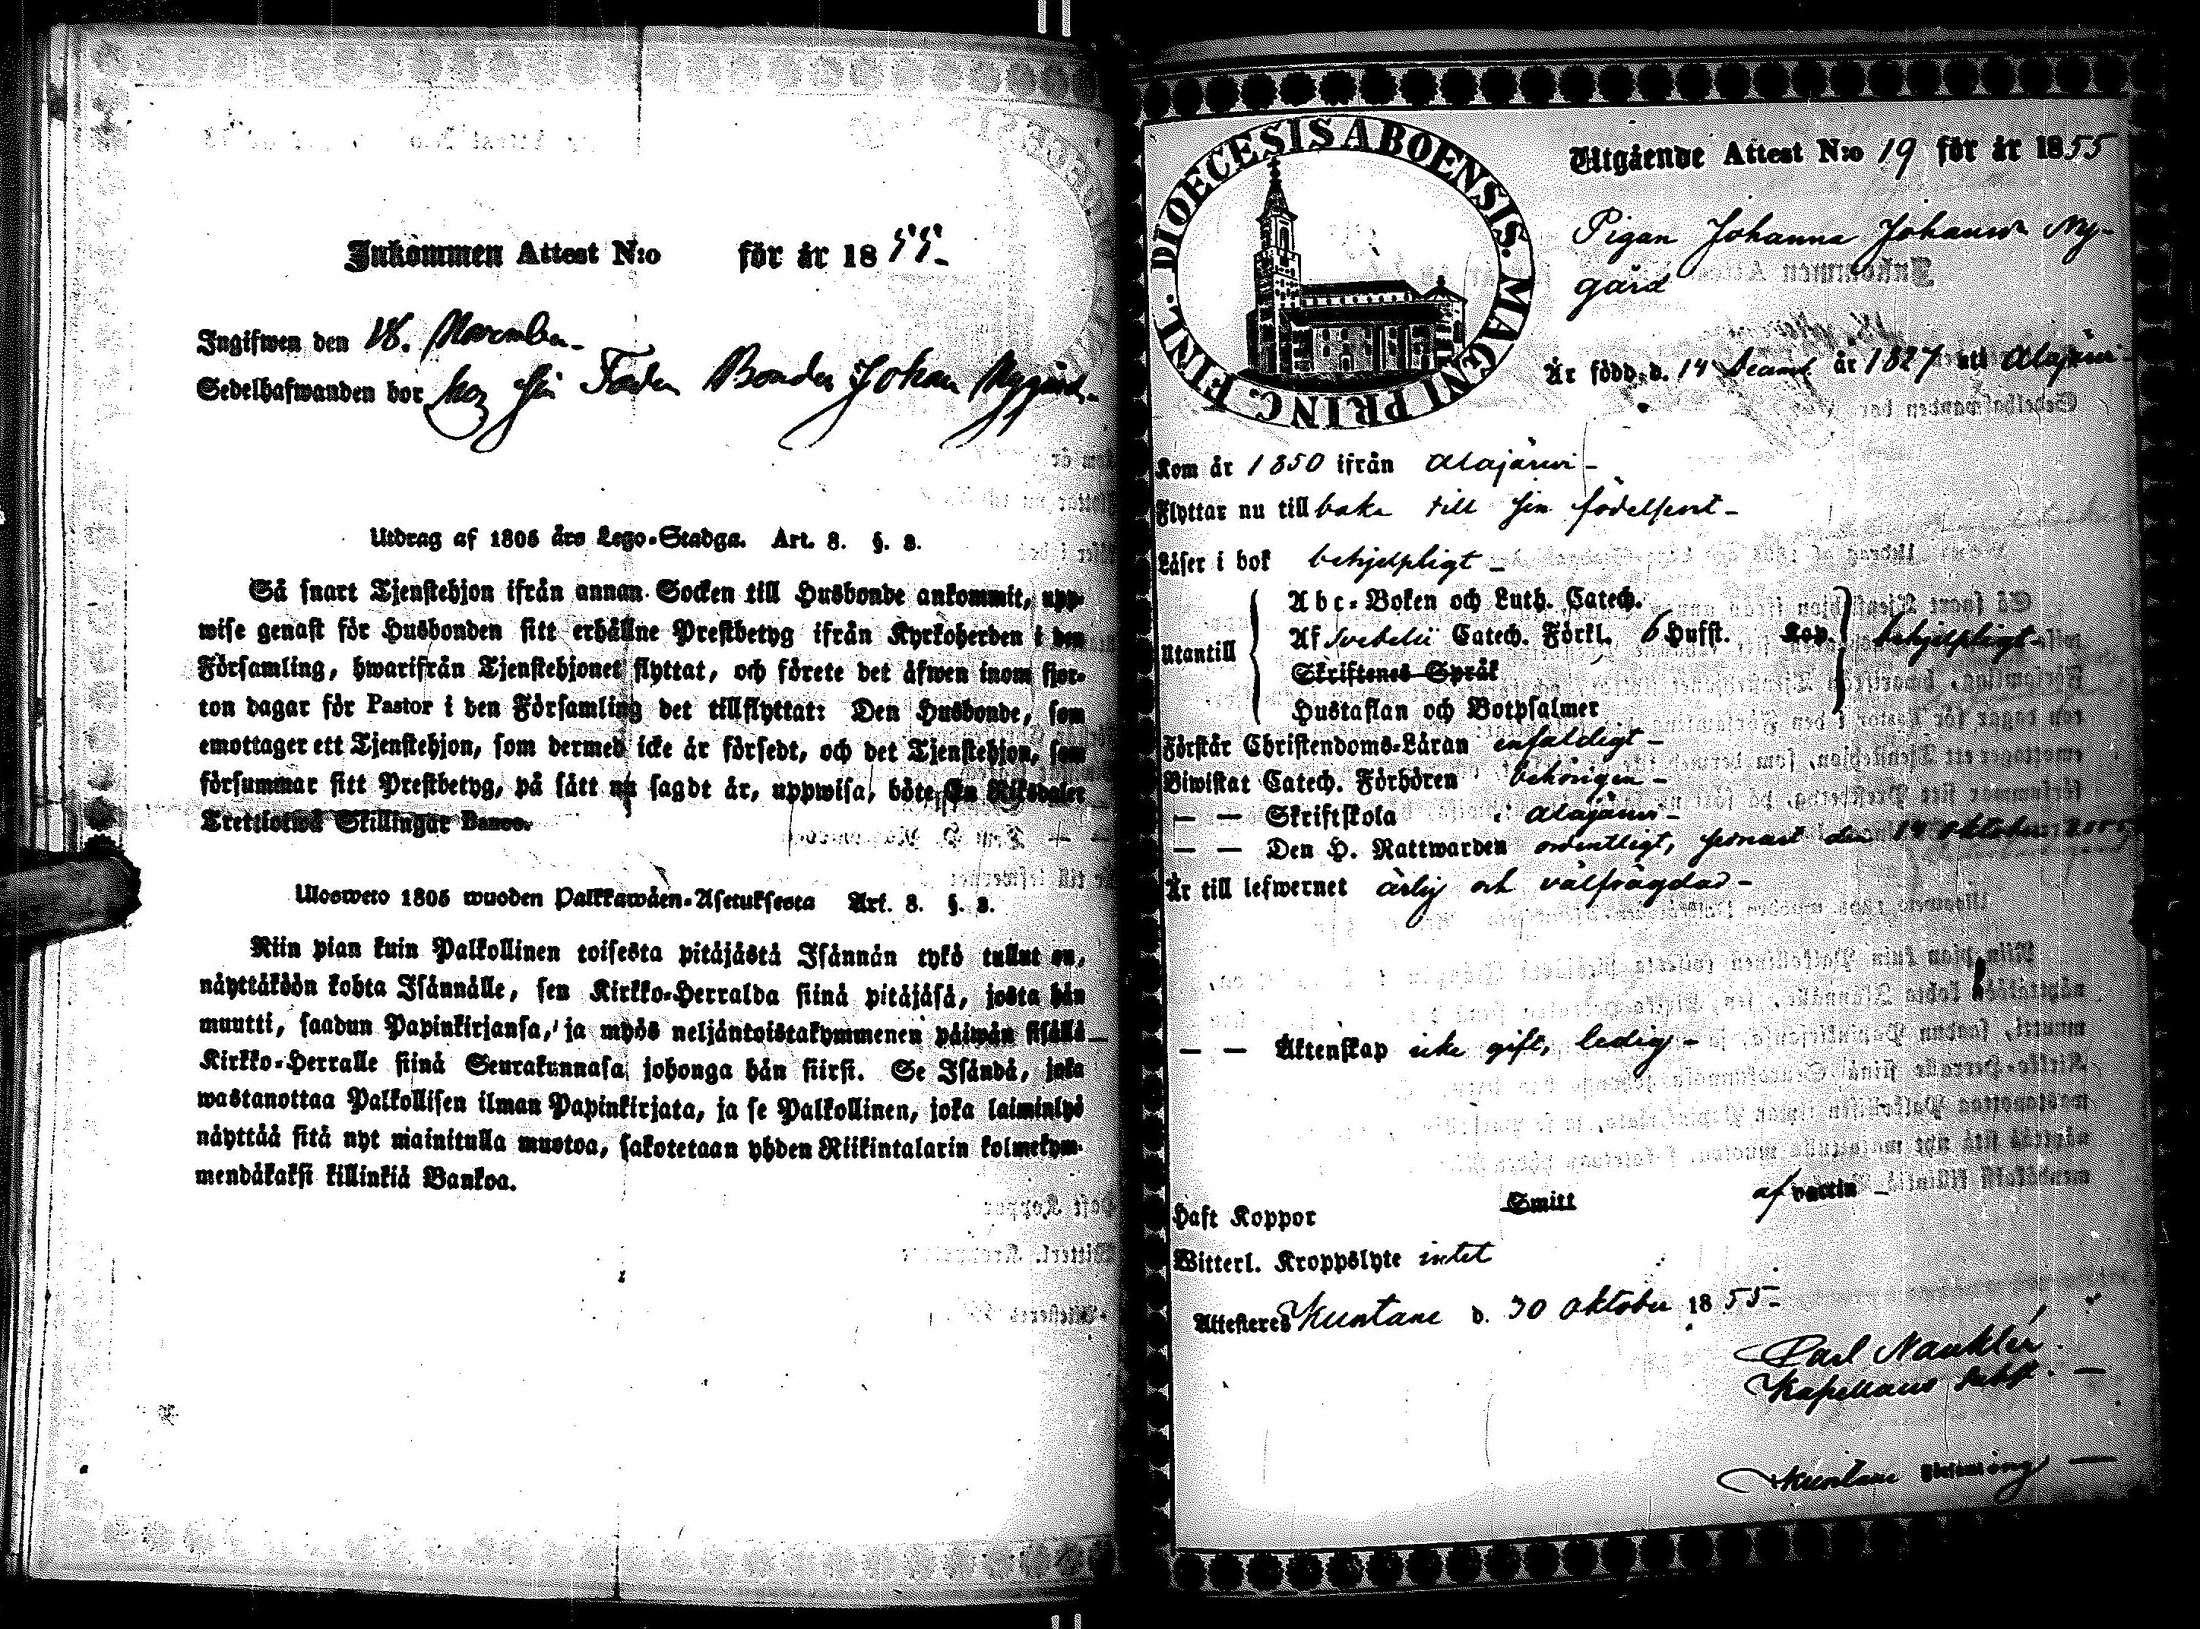 Inkommen Attest N:o för år 1855.
Ingifwen den 18. November
Sedelhafwanden bor hos sin Fader Bonden Johan Nygård
Utdrag af 1805 års Lego-Stadga. Art. 8. §. 3.
Så snart Tjenstehjon ifrån annan Socken till Husbonde ankommit, upp-
wise genast för Husbonden sitt erhållne Prestbetyg ifrån Kyrkoherden i den
Församling, hwarifrån Tjenstehjonet flyttat, och förete det äfwen inom fjor-
ton dagar för Pastor i den Församling det tillflyttat: Den Husbonde, som
emottager ett Tjenstehjon, som dermed icke är försedt, och det Tjenstehjon, som
försummar sitt Prestbetyg, på sätt nu sagdt är, uppwisa, böte En Riksdaler
Trettiotwå Skillingar Banco.
Ulosweto 1805 wuoden Palkkawäen-Asetuksesta Art. 8. §. 3.
Niin pian kuin Palkollinen toisesta pitäjästä Isännän tykö tullut on,
näyttäköön kohta Isännälle, sen Kirkko-Herralda siinä pitäjäsä, josta hän
muutti, saadun Papinkirjansa, ja myös neljäntoistakymmenen päiwän sisällä
Kirkko-Herralle siinä Seurakunnasa johonga hän siirsi. Se Isändä, joka
wastanottaa Palkollisen ilman Papinkirjata, ja se Palkollinen, joka laiminlyö
näyttää sitä nyt mainitulla muotoa, sakotetaan yhden Riikintalarin kolmekym-
mendäkaksi killinkiä Bankoa.
DIOECESIS ABOENSIS. MAGNI PRINC. FINL.
Utgående Attest N:o 19 för år 1855
Pigan Johanna Johansdr Ny-
gård
Är född d. 14 Decemb år 1827 uti Alajärvi
Kom år 1850 ifrån Alajärvi
Flyttar nu tillbaka till sin födelseort
Läser i bok behjelpligt
Utantill
Abc-Boken och Luth. Catech.
Af Svebelii Catech. Förkl. 6 Hufst. Kap. behjelpligt
Skriftenes Språk
Hustaflan och Botpsalmer
Förstår Christendoms-Läran enfaldigt
Biwistat Catech. Förhören behörigen
— — Skriftskola i Alajärvi
— — Den H. Nattwarden ordentligt, senast den 14 Oktober
Är till lefwernet ärlig och välfrägdad
— — Äktenskap icke gift, ledig
Haft Koppor Smitt af vaccin
Witterl. Kroppslyte intet
Attesteras Kuortane d. 30 Oktober 1855
Carl Nauklér
Kapellans Subst.
Kuortane Församling